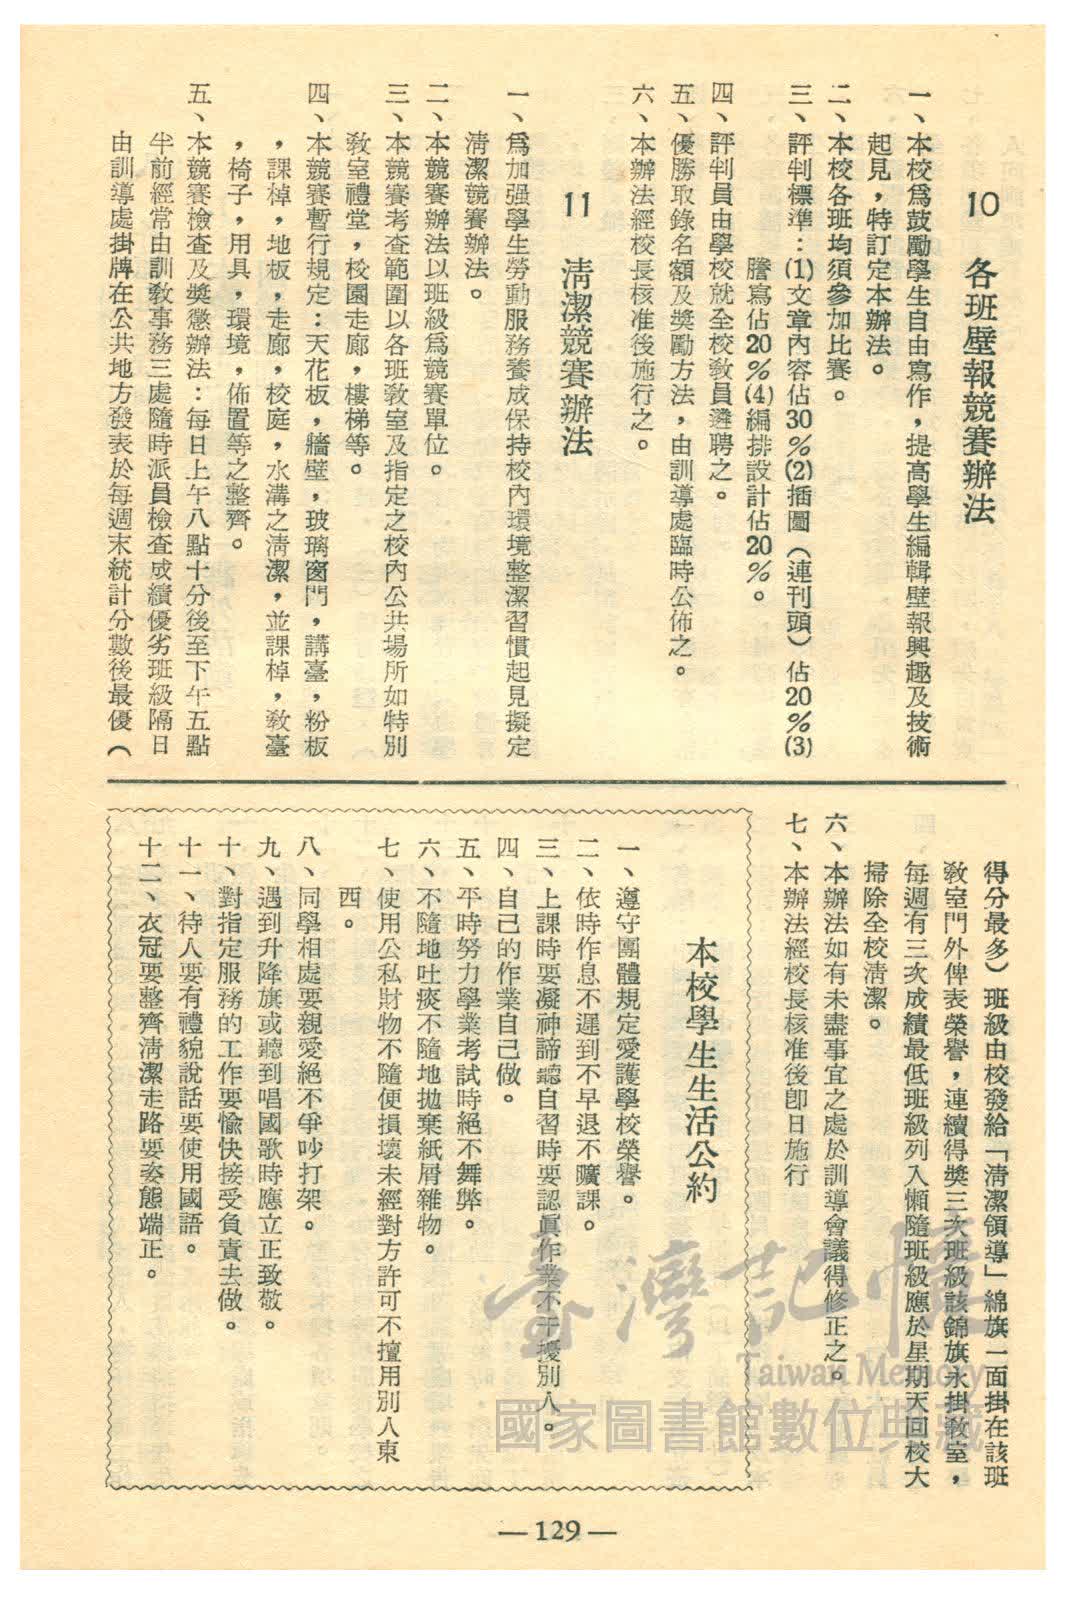 10 各班壁報競賽辦法
一、本校爲鼓勵學生自由寫作，提高學生編輯壁報興趣及技術
起見，特訂定本辦法。
二、本校各班均須參加比賽。
三、評判標準：(1)文章內容佔30%(2)插圖（連刊頭）佔20%(3)
謄寫佔20%(4)編排設計佔20%。
四、評判員由學校就全校教員遴聘之。
五、優勝取錄名額及獎勵方法，由訓導處臨時公佈之。
六、本辦法經校長核准後施行之。
11 清潔競賽辦法
一、爲加强學生勞動服務養成保持校內環境整潔習慣起見擬定
清潔競賽辦法。
二、本競賽辦法以班級爲競賽單位。
三、本競賽考查範圍以各班教室及指定之校內公共場所如特別
教室禮堂，校園走廊，樓梯等。
四、本競賽暫行規定：天花板，牆壁，玻璃窗門，講臺，粉板
，課棹，地板，走廊，校庭，水溝之清潔，並課棹，教臺
，椅子，用具，環境，佈置等之整齊。
五、本競賽檢查及獎懲辦法：每日上午八點十分後至下午五點
半前經常由訓教事務三處隨時派員檢查成績優劣班級隔日
由訓導處掛牌在公共地方發表於每週末統計分數後最優（
得分最多）班級由校發給「清潔領導」綿旗一面掛在該班
教室門外俾表榮譽，連續得獎三次班級該錦旗永掛教室，
每週有三次成績最低班級列入懶隨班級應於星期天回校大
掃除全校清潔。
六、本辦法如有未盡事宜之處於訓導會議得修正之。
七、本辦法經校長核准後卽日施行
本校學生生活公約
一、遵守團體規定愛護學校榮譽。
二、依時作息不遲到不早退不曠課。
三、上課時要凝神諦聽自習時要認眞作業不干擾別人。
四、自己的作業自己做。
五、平時努力學業考試時絕不舞弊。
六、不隨地吐痰不隨地拋棄紙屑雜物。
七、使用公私財物不隨便損壞未經對方許可不擅用別人東
西。
八、同學相處要親愛絕不爭吵打架。
九、遇到升降旗或聽到唱國歌時應立正致敬。
十、對指定服務的工作要愉快接受負責去做。
十一、待人要有禮貌說話要使用國語。
十二、衣冠要整齊清潔走路要姿態端正。
臺灣記憶
Taiwan Memory
國家圖書館數位典藏
—129—